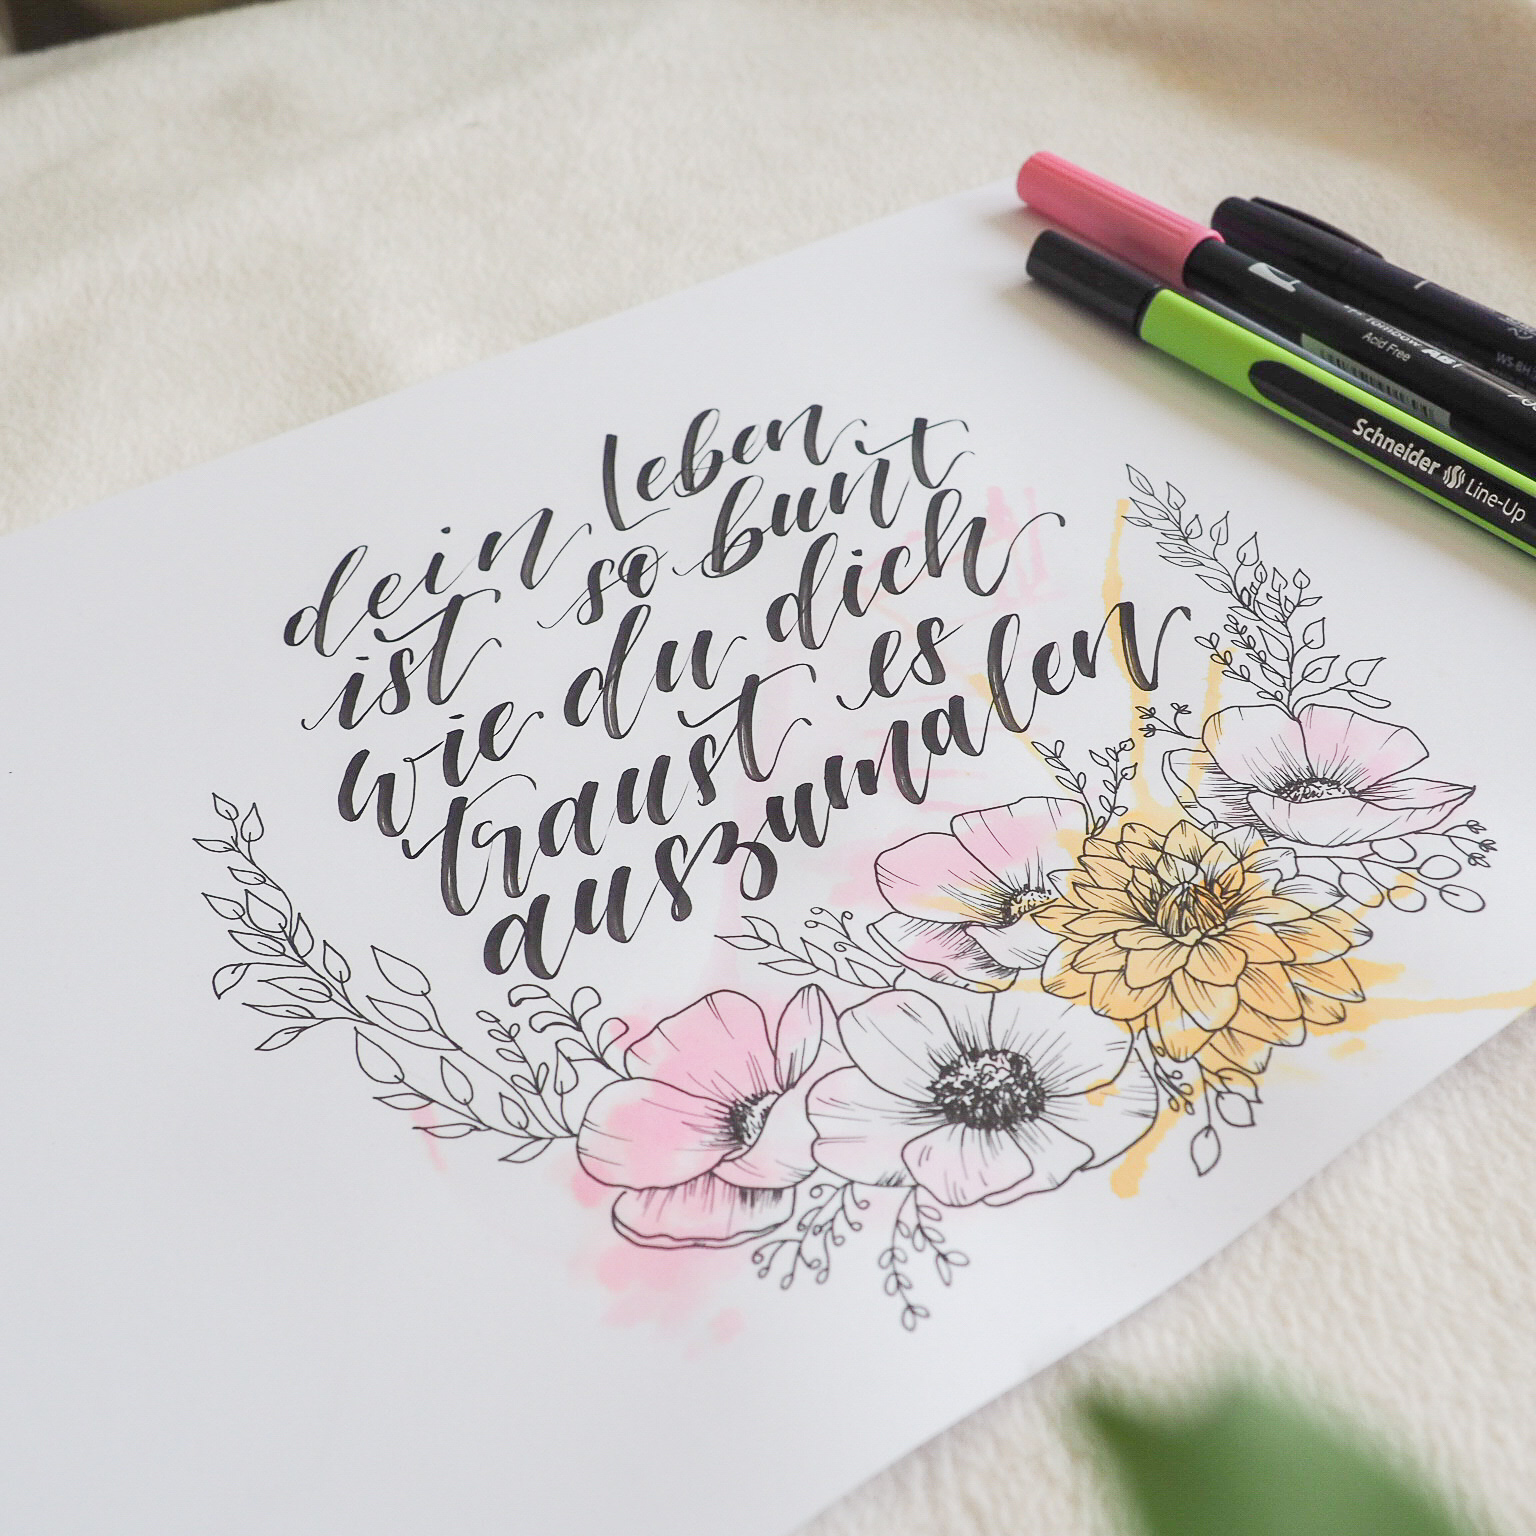 dein leben
ist so bunt
wie du dich
traust es
auszumalen
Tombow ABT
Acid Free
Schneider Line-Up